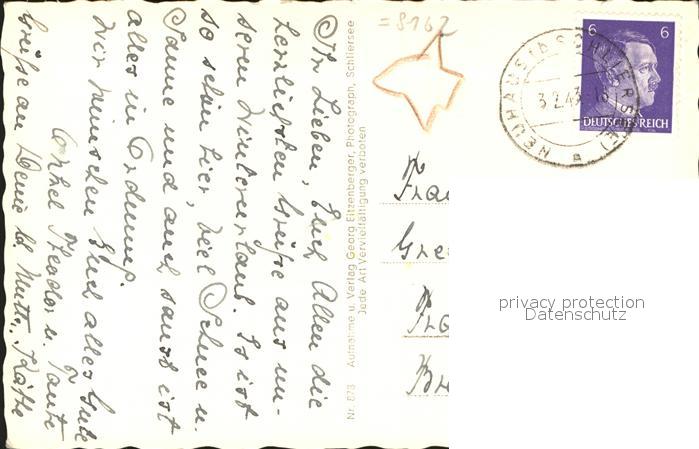 Ihr Lieben, Euch Allen die
herzlichsten Grüße aus un-
serem Winterurlaub. Es ist
so schön hier, viel Schnee u.
Sonne und auch sonst ist
alles in Ordnung.
Wir wünschen Euch alles Gute
Onkel Theodor u. Tante
Käthe
Grüße an Deine lb Mutti.
Nr. 873 Aufnahme u. Verlag Georg Eitzenberger, Photograph, Schliersee
Jede Art Vervielfältigung verboten
= 8162
6 6
DEUTSCHES REICH
NEUHAUS (Ü. SCHLIERSEE)
3.2.43
privacy protection
Datenschutz